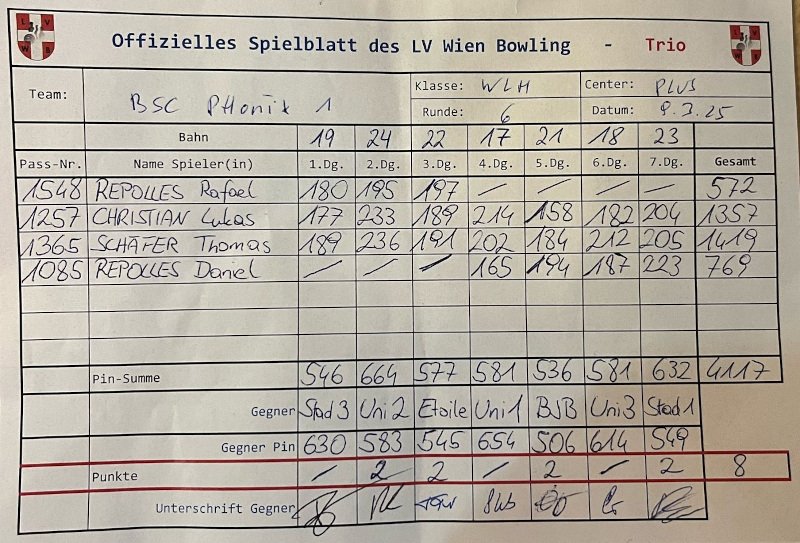 Offizielles Spielblatt des LV Wien Bowling - Trio
Team: BSC PHönix 1 Klasse: WLH Center: PLUS
Runde: 6 Datum: 9.3.25
Bahn 19 24 22 17 21 18 23
Pass-Nr. Name Spieler(in) 1.Dg. 2.Dg. 3.Dg. 4.Dg. 5.Dg. 6.Dg. 7.Dg. Gesamt
1548 REPOLLES Rafael 180 195 197 – – – – 572
1257 CHRISTIAN Lukas 177 233 189 214 158 182 204 1357
1365 SCHÄFER Thomas 189 236 191 202 184 212 205 1419
1085 REPOLLES Daniel – – – 165 194 187 223 769
Pin-Summe 546 664 577 581 536 581 632 4117
Gegner Stad 3 Uni 2 Etoile Uni 1 BJB Uni 3 Stad 1
Gegner Pin 630 583 545 654 506 614 549
Punkte – 2 2 – 2 – 2 8
Unterschrift Gegner